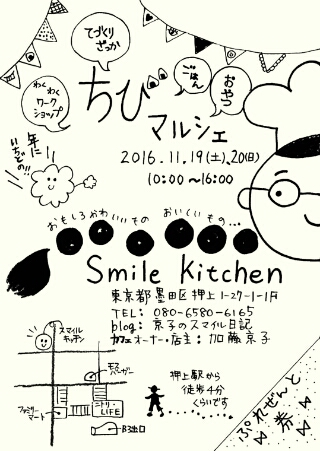 てづくり
ざっか
ごはん
おやつ
わくわく
ワーク
ショップ
ちび
マルシェ
年に
いちどの!!
2016.11.19(土),20(日)
10:00〜16:00
おもしろかわいいもの おいしいもの...
Smile Kitchen
東京都墨田区押上1-27-1-1F
TEL: 080-6580-6165
blog: 京子のスマイル日記
カフェオーナー・店主:加藤京子
スマイル
キッチン
モス
バーガー
ファミリー
マート
ニトリ・
LIFE
B3出口
押上駅から
徒歩4分
くらいです
ぷれぜんと
券